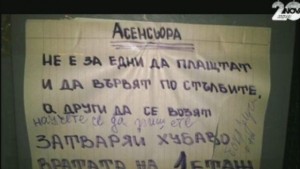 20
NOVA
АСЕНСЬОРА
НЕ Е ЗА ЕДНИ ДА ПЛАЩТАТ
И ДА ВЪРВЯТ ПО СТЪЛБИТЕ.
А ДРУГИ ДА СЕ ВОЗЯТ
научете се да
ЗАТВАРЯЙ ХУБАВО
ВРАТАТА НА 1 ЕТАЖ